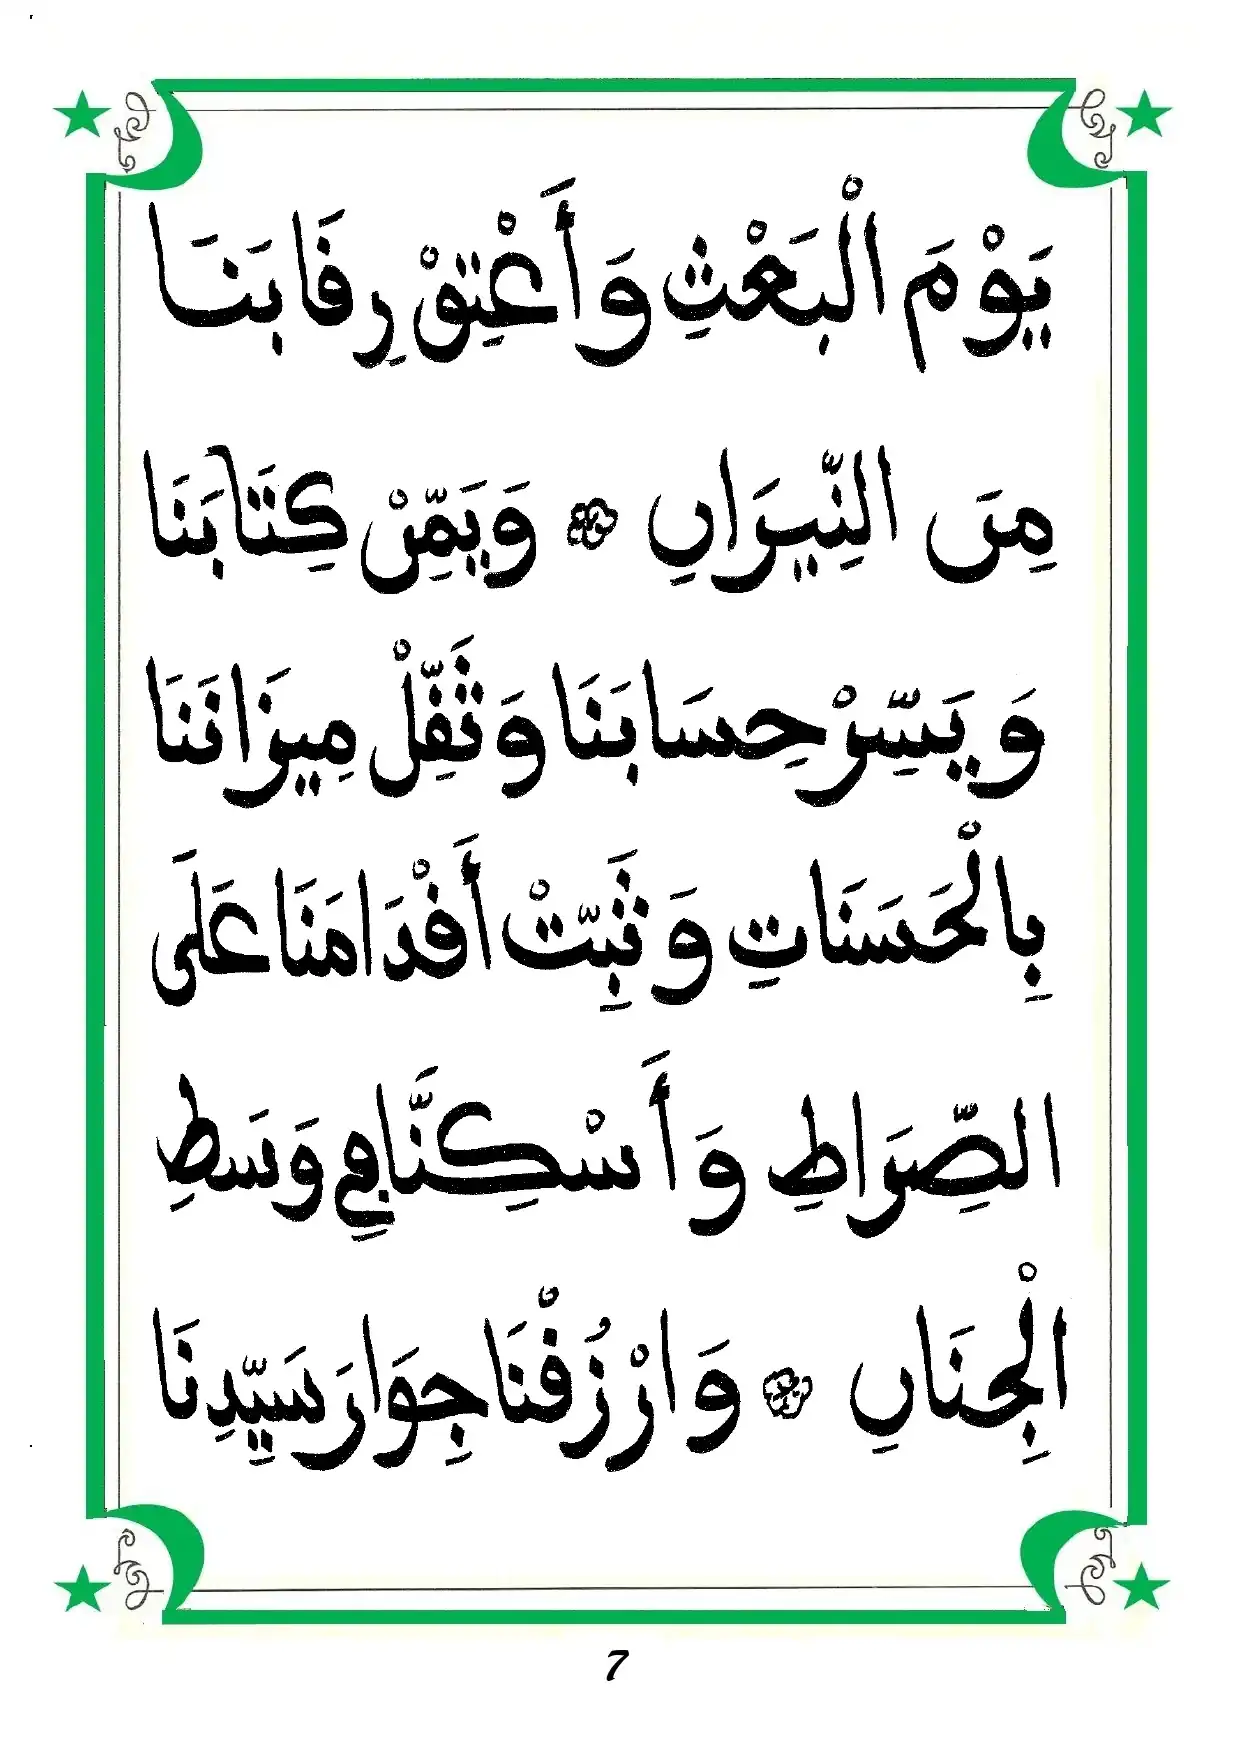 يَوْمَ الْبَعْثِ وَأَعْتِقْ رِقَابَنَا
مِنَ النِّيرَانِ ۞ وَيَمِّنْ كِتَابَنَا
وَيَسِّرْ حِسَابَنَا وَثَقِّلْ مِيزَانَنَا
بِالْحَسَنَاتِ وَثَبِّتْ أَقْدَامَنَا عَلَى
الصِّرَاطِ وَأَسْكِنَّا فِي وَسَطِ
الْجِنَانِ ۞ وَارْزُقْنَا جِوَارَ سَيِّدِنَا
7